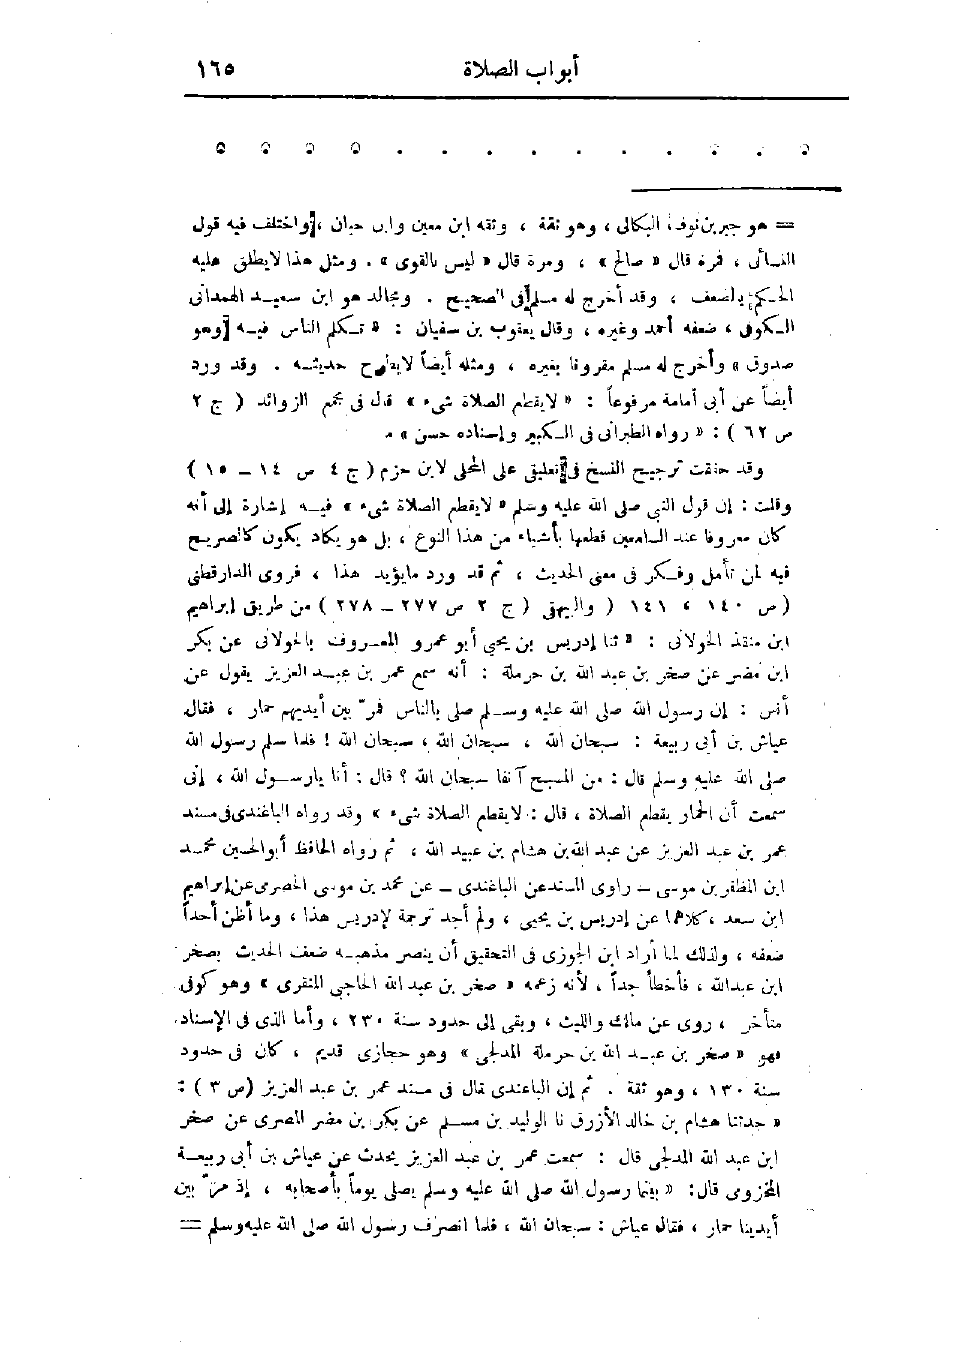 أبواب الصلاة ١٦٥
= هو جبر بن نوف البكالى ، وهو ثقة ، وثقه ابن معين وابن حبان ، واختلف فيه قول
النسائى ، فمرة قال « صالح » ، ومرة قال « ليس بالقوى » . ومثل هذا لايطلق عليه
الحكم بالضعف ، وقد أخرج له مسلم فى الصحيح . ومجالد هو ابن سعيد الهمدانى
الكوفى ، ضعفه أحمد وغيره ، وقال يعقوب بن سفيان : « تكلم الناس فيه وهو
صدوق » وأخرج له مسلم مقرونا بغيره ، ومثله أيضاً لايطرح حديثه . وقد ورد
أيضاً عن أبى أمامة مرفوعاً : « لايقطع الصلاة شىء » قال فى مجمع الزوائد ( ج ٢
ص ٦٢ ) : « رواه الطبرانى فى الكبير وإسناده حسن » .
وقد حققت ترجيح النسخ فى تعليقى على المحلى لابن حزم ( ج ٤ ص ١٤ – ١٥ )
وقلت : إن قول النبى صلى الله عليه وسلم « لايقطع الصلاة شىء » فيه إشارة إلى أنه
كان معروفا عند السامعين قطعها بأشياء من هذا النوع ، بل هو يكاد يكون كالصريح
فيه لمن تأمل وفكر فى معنى الحديث ، ثم قد ورد مايؤيد هذا ، فروى الدارقطنى
( ص ١٤٠ ، ١٤١ ) والبيهقى ( ج ٢ ص ٢٧٧ – ٢٧٨ ) من طريق إبراهيم
ابن منقذ الخولانى : « ثنا إدريس بن يحيى أبو عمرو المعروف بالخولانى عن بكر
ابن مضر عن صخر بن عبد الله بن حرملة : أنه سمع عمر بن عبد العزيز يقول عن
أنس : إن رسول الله صلى الله عليه وسلم صلى بالناس فمرّ بين أيديهم حمار ، فقال
عياش بن أبى ربيعة : سبحان الله ، سبحان الله ، سبحان الله ! فلما سلم رسول الله
صلى الله عليه وسلم قال : من المسبح آنفا سبحان الله ؟ قال : أنا يارسول الله ، إنى
سمعت أن الحمار يقطع الصلاة ، قال : لايقطع الصلاة شىء » وقد رواه الباغندى فى مسند
عمر بن عبد العزيز عن عبد الله بن هشام بن عبيد الله ، ثم رواه الحافظ أبوالحسين محمد
ابن المظفر بن موسى – راوى المسند عن الباغندى – عن محمد بن موسى الحضرمى عن إبراهيم
ابن سعد ، كلاهما عن إدريس بن يحيى ، ولم أجد ترجمة لإدريس هذا ، وما أظن أحداً
ضعفه ، ولذلك لما أراد ابن الجوزى فى التحقيق أن ينصر مذهبه ضعف الحديث بصخر
ابن عبدالله ، فأخطأ جداً ، لأنه زعمه « صخر بن عبد الله الحاجبى المنقرى » وهو كوفى
متأخر ، روى عن مالك والليث ، وبقى إلى حدود سنة ٢٣٠ ، وأما الذى فى الإسناد
فهو « صخر بن عبد الله بن حرملة المدلجى » وهو حجازى قديم ، كان فى حدود
سنة ١٣٠ ، وهو ثقة . ثم إن الباغندى قال فى مسند عمر بن عبد العزيز (ص ٣ ) :
« حدثنا هشام بن خالد الأزرق نا الوليد بن مسلم عن بكر بن مضر المصرى عن صخر
ابن عبد الله المدلجى قال : سمعت عمر بن عبد العزيز يحدث عن عياش بن أبى ربيعة
المخزومى قال : « بينما رسول الله صلى الله عليه وسلم يصلى يوماً بأصحابه ، إذ مرّ بين
أيدينا حمار ، فقال عياش : سبحان الله ، فلما انصرف رسول الله صلى الله عليه وسلم =